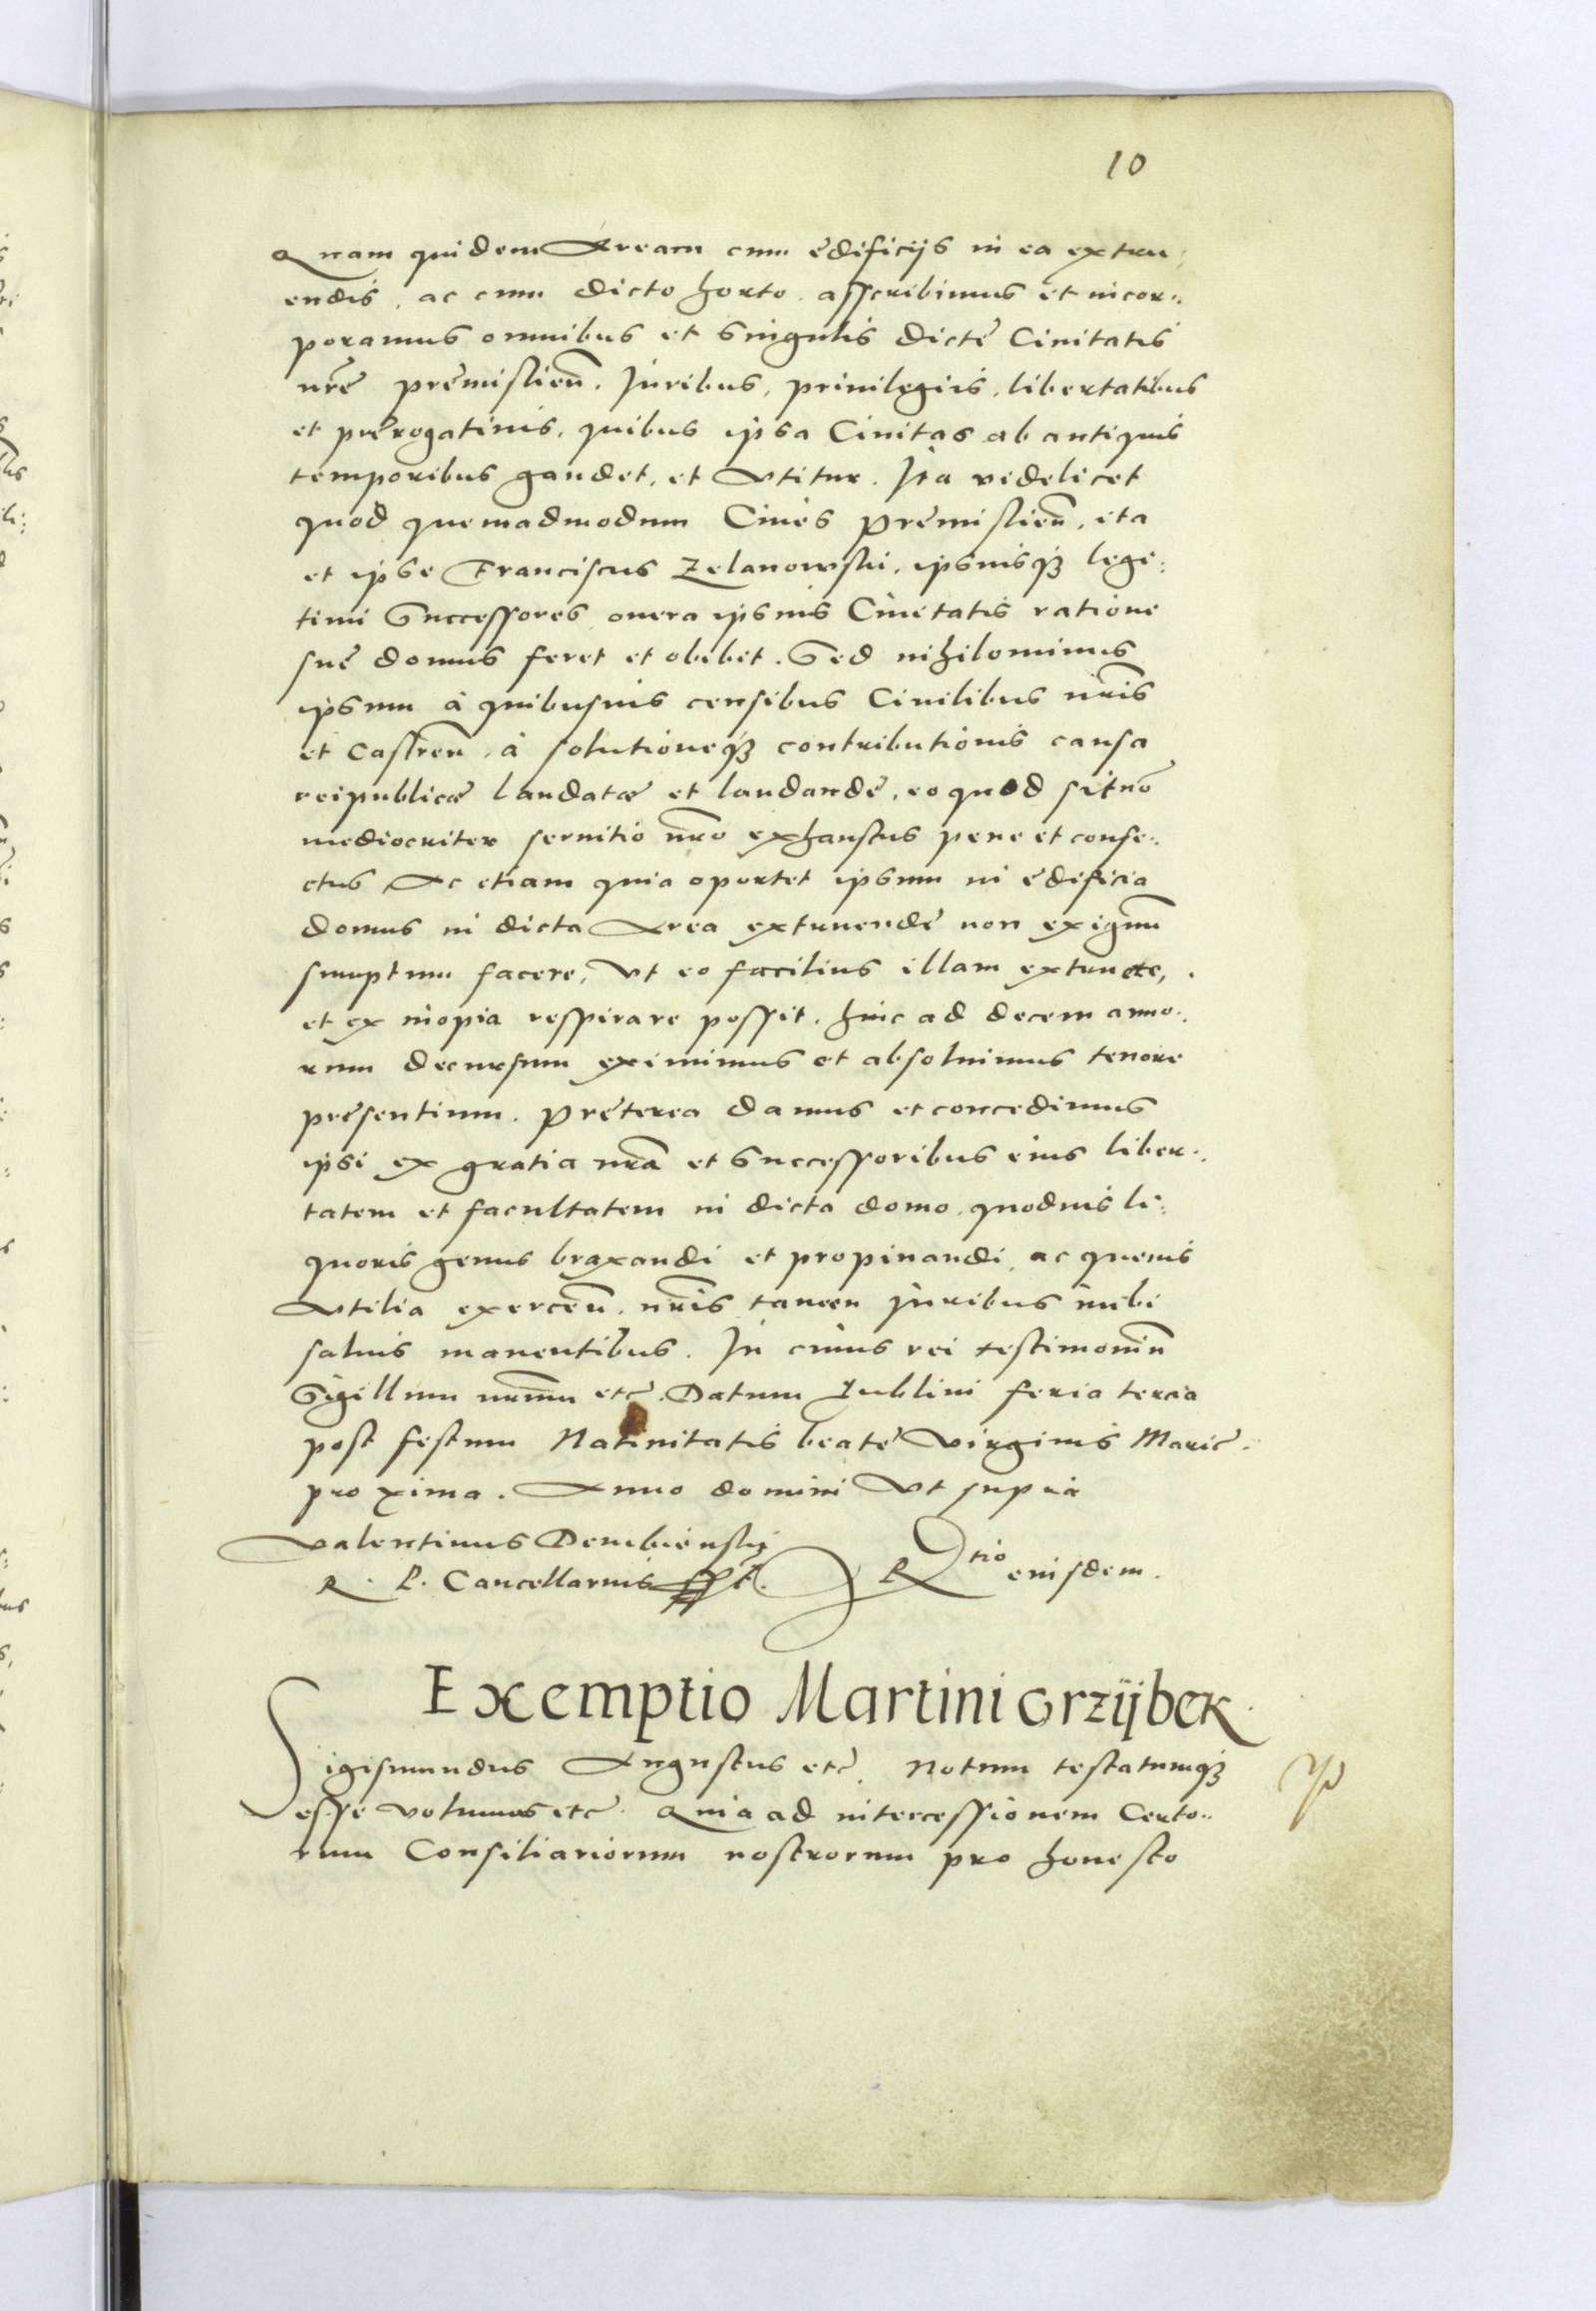 10
Quam quidem Aream cum ędificijs in ea extru:
endis, ac cum dicto horto, asscribimus et incor:
poramus omnibus et Singulis dictę Ciuitatis
nrę pręmislień. Iuribus, priuilegiis, libertatibus
et pręrogatiuis, quibus ipsa Ciuitas ab antiquis
temporibus gaudet, et Vtitur. Ita videlicet
quod quemadmodum Ciues pręmislień, ita
et ipse Franciscus Zelanowski, ipsiusq3 legi:
timi Successores onera ipsius Ciuitatis ratione
suę domus feret et obibit. Sed nihilominus
ipsum à quibusuis censibus Ciuilibus nris
et Castreń, à solutioneq3 contributionis causa
reipublicæ laudatæ et laudandę, eo quod sit nō
mediocriter seruitio nro exhaustus pene et confe:
ctus Ac etiam quia oportet ipsum in ędificia
domus in dicta Area extruendę non exiguū
sumptum facere, Vt eo facilius illam extruere,
et ex inopia respirare possit, hinc ad decem anno:
rum decursum eximimus et absoluimus tenore
pręsentium. Pręterea damus et concedimus
ipsi ex gratia nrā et Successoribus eius liber:
tatem et facultatem in dicta domo quoduis li:
quoris genus braxandi et propinandi, ac queuis
Vtilia exerceń. nris tamen Iuribus inibi
saluis manentibus. In cuius rei testimoniū
Sigillum nrum etc. Datum Lublini feria tercia
post festum Natiuitatis beatę Virginis Marię
proxima. Anno domini Vt supra
Valentinus Dembienski
R. P. Cancellarius sst. Rtio eiusdem.
Exemptio Martini Grzÿbek
Sigismundus Augustus etc. Notum testatumq3
esse volumus etc. Quia ad intercessionem Certo:
rum Consiliariorum nostrorum pro honesto